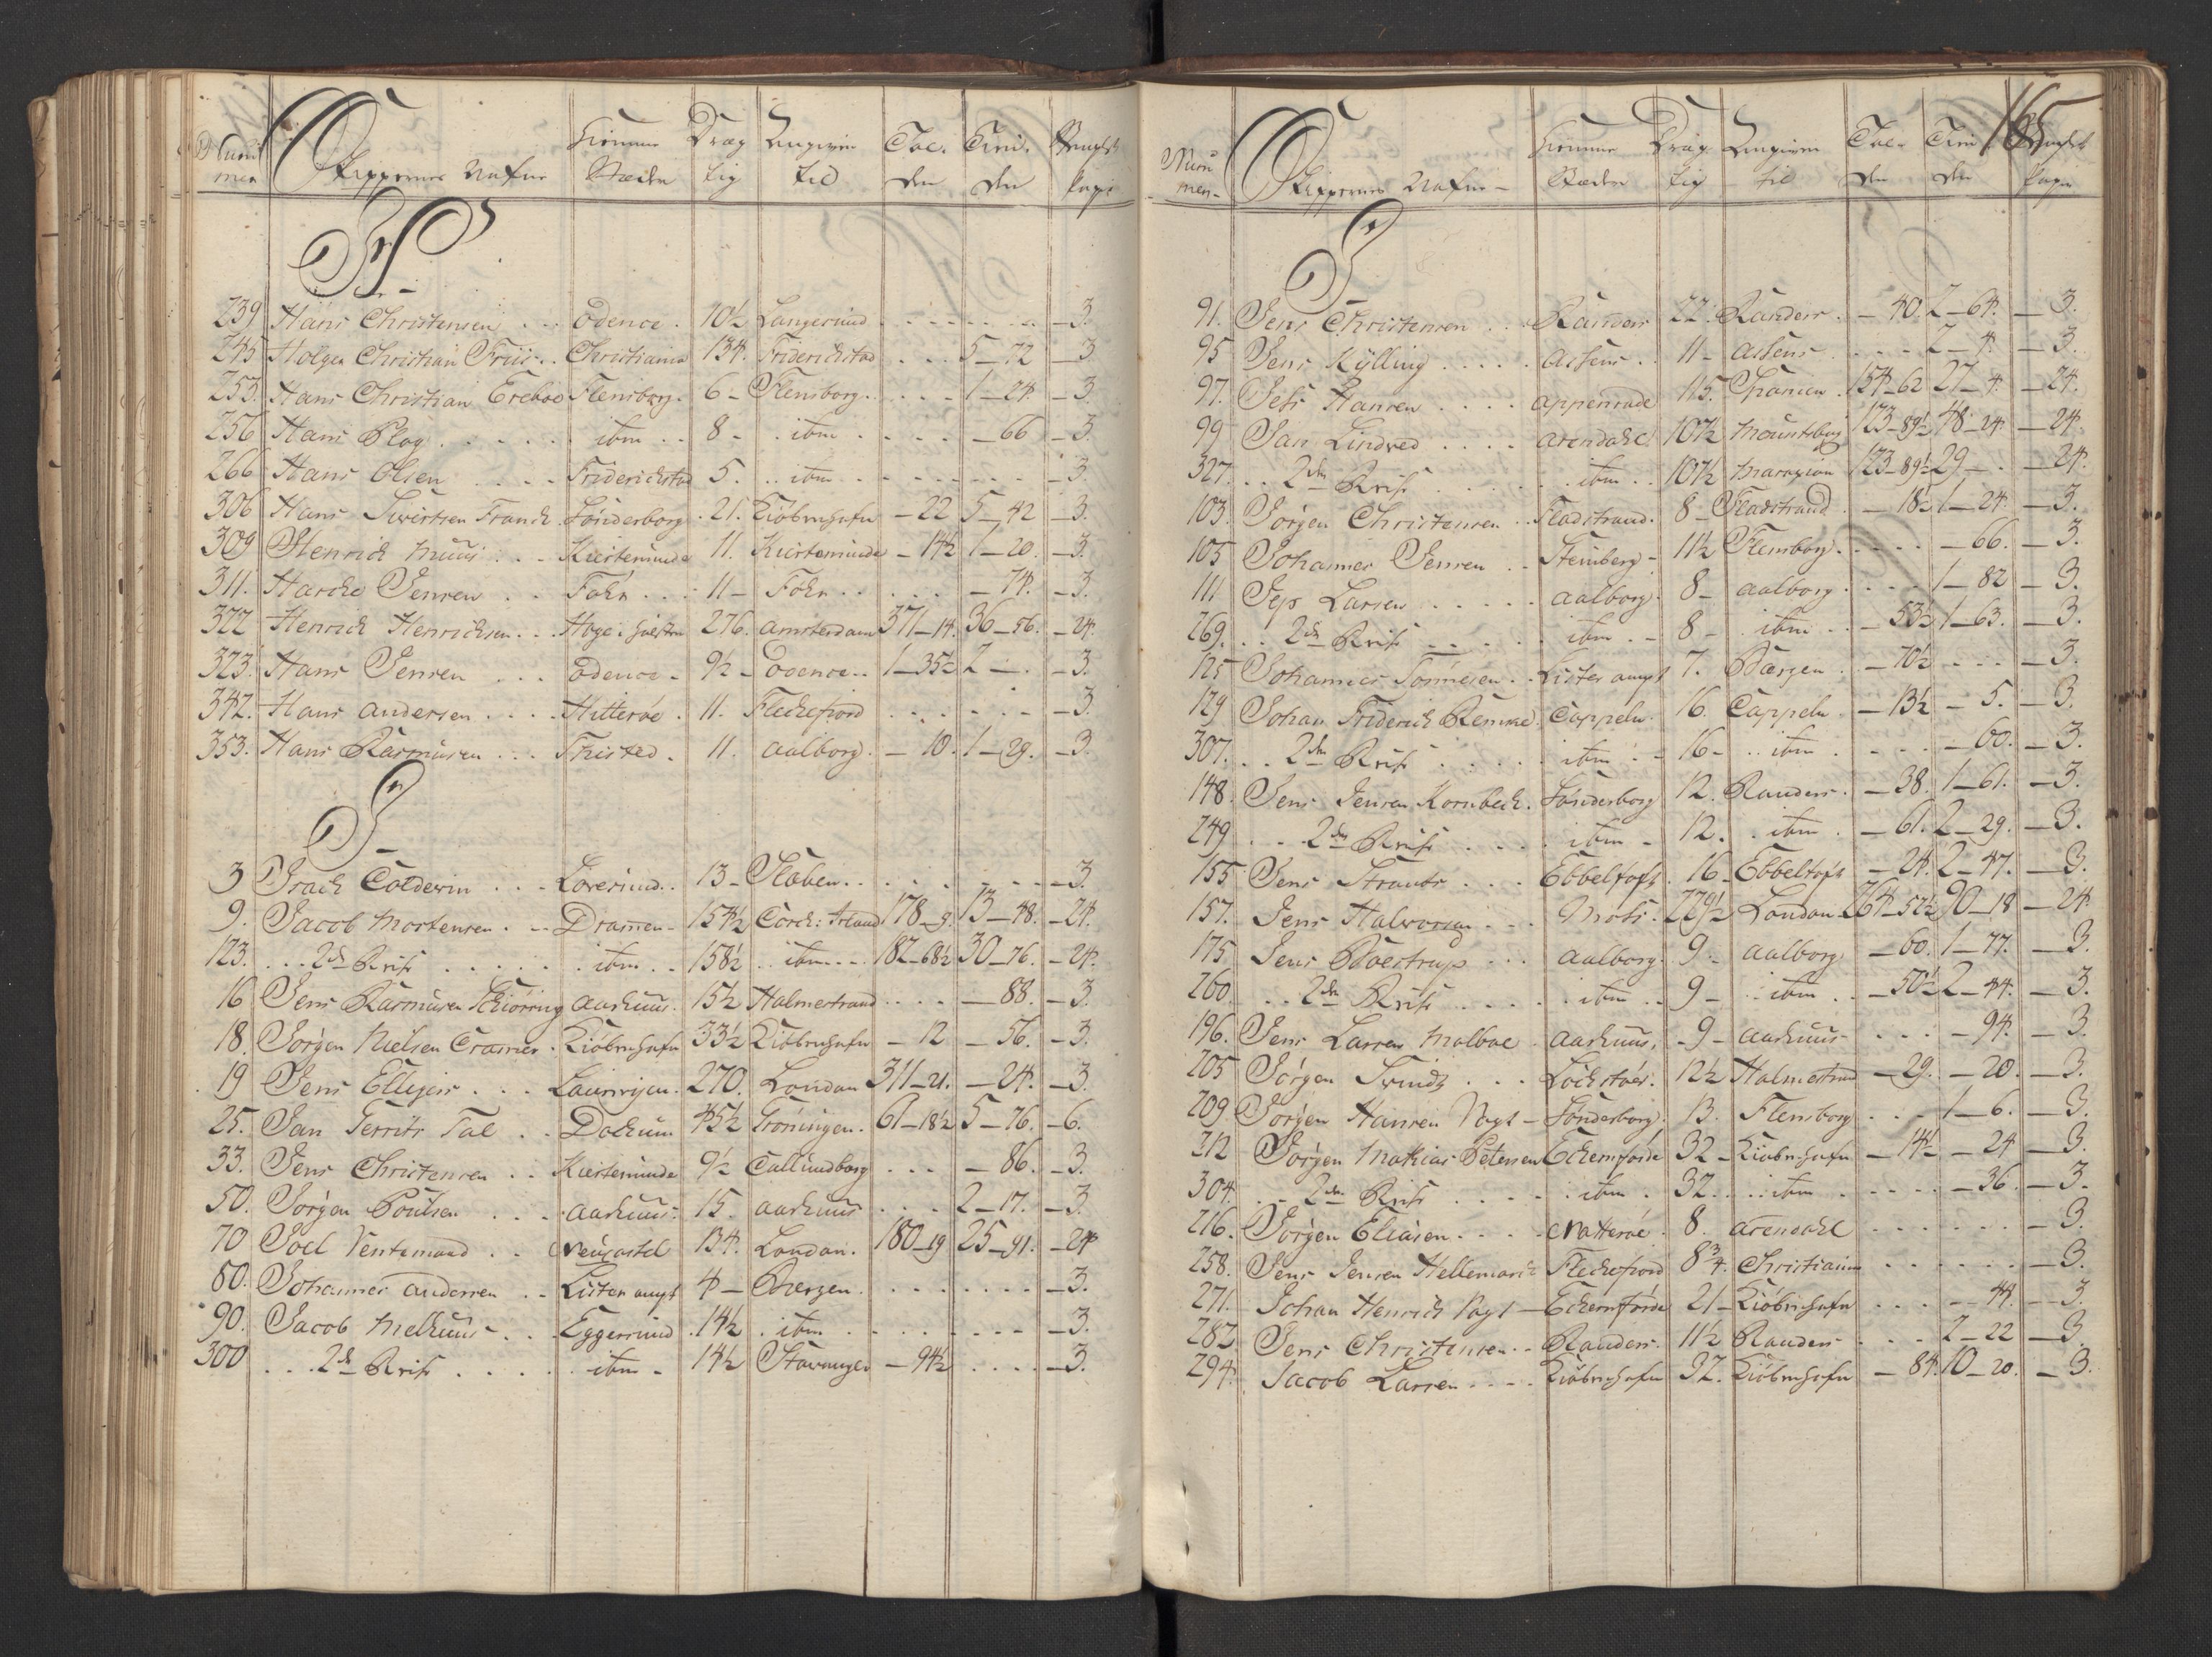 Num̅ mer Skippernes Nafne Hiemme Stæder Dræg tig Angiven til Tol- den Tien- den
H
239 Hans Christensen . . Odence . 10½ Langesund . . . . . . . . — 3.
245 Holger Christian Friis . . Christiania 134. Friderichstad . . . 5 — 72 — 3
253. Hans Christian Ereboe Flensborg . 6 - Flensborg . . . . 1 — 24 — 3.
256 Hans Plog . . . . . ibm . . 8 - . ibm . . . . — 66 — 3.
266 Hans Olsen . . . . Friderichstad 5. . . ibm . . . . . . . — 3.
306 Hans Swertsen Franck . Sönderborg . 21. Kiöbenhafn — 22 5 — 42 — 3.
309 Henrich Muus . . . Kiertemünde 11. Kiertemünde — 14½ 1 — 20. — 3.
311. Harcke Jensen . . Föhr . . . 11 — Föhr . . . . — 74. — 3.
322 Henrich Henrichsen . . . 276. Amsterdam 371 — 14. 36 — 56. — 24.
323. Hans Jensen . . . Odence - 9½ - Odence . . 1 — 35½ 2 — . — 3.
342. Hans Andersen . . . . Hitteröe . 11. Fleckefiord . . . . . . — 3.
353. Hans Rasmusen . . . Thisted . 11. Aalborg . — 10. 1 — 29. — 3.
J
3 Isach Calderin . . . Löversund . . 13 - Staben . . . . . . . — 3.
9. Jacob Mortensen . - - Dramen - 154½ Corck : Irland 178 — 9. 13 — 48. — 24.
123. . . . 2den Reise . . . . . ibm . . 158½ . . ibm . - . 182 — 68½ 30 — 76. — 24.
16 Jens Rasmusen Schiörring Aarhuus . 15½ Halmestrand . . . . — 88. — 3.
18. Jörgen Nielsen Cramer . Kiöbenhafn 33½ Kiöbenhafn — 12 — 56. — 3.
19 Jens Ellegers . . . Laurvigen . 270. London 311 — 21. — 24. — 3.
25. Jan Gerrits Tal . . Dockum 45½ Gröningen . 61 — 18½ 5 — 76. — 6.
33. Jens Christensen . . Kiertemünde 9½ Callundborg . . . — 86. — 3.
50. Jörgen Poulsen . . . Aarhuus . 15. Aarhuus . . . 2 — 17. — 3.
70 Joel Ventemand . . Neucastel 134. London . 180 — 19 25 — 91. — 24
80. Johannes Andersen . . Lister ampt 4 — Bergen . . . . . . . . — 3.
90. Jacob Melhuus . . . Eggersund . 14½ . ibm . . . . . . . — 3.
300 . . . 2de Reise . . . . . ibm - 14½ Stavanger — 94½ . . . . — 3.
165
Num̅ mer - Skippernes Nafne - Hiemme Stæder Dræg tig Angiven til Tol- den Tien den
J
91. Jens Christensen . . . Randers 22. Randers . — 40. 2 — 64. — 3.
95 Jens Kylling . . . . . Assens . . 11 - Assens . . . . 2 — 4. — 3.
97. Jess Hansen . . . . Appenrade 115. Spanien . 154 — 62 27 — 4. — 24.
99 Jan Lindved . . . . Arendahl 107½ 123 — 89½ 48 — 24 — 24.
327. . . 2den Reise . . . . ibm . . 107½ 123 — 89½ 29 — . — 24.
103. Jörgen Christensen . . Fladstrand . 8 - Fladstrand . — 18½ 1 — 24. — 3.
105 Johannes Jensen . . Steinberg - 11½ Flensborg . . . . . — 66. — 3.
111 Jep Larsen . . . . . Aalborg . 8 - Aalborg . . . . 1 — 82 — 3.
269. . . 2den Reise . . . . . ibm . - 8 - . ibm . . — 53½ 1 — 63. — 3.
125 Johannes Tönnesen . . Lister ampt 7. Bergen . — 70½ . . . — 3.
129 Johan Friderich Remme . Cappeln . 16. Cappeln . — 13½ — 5. — 3.
307. . . 2den Reise . . . . . ibm . - 16 - . . ibm . . . . — 60. — 3.
148. Jens Jensen Kornbeck . Sönderborg 12. Randers . — 38. 1 — 61. — 3.
249 . . . 2den Reise . . . ibm - 12. . ibm . — 61. 2 — 29. — 3.
155 Jens Strantz . . . Ebbeltoft . 16 - Ebbeltoft — 24. 2 — 47. — 3.
157. Jens Halvorsen . . . Moss . 229½ London 264 — 52½ 90 — 18 — 24
175 Jens Böestrup . . . Aalborg . 9. - Aalborg — 60. 1 — 77. — 3.
260. . . 2den Reise . . . . ibm . . 9 - . . ibm . . — 50½ 2 — 44. — 3.
196. Jens Larsen Malboe . Aarhuus . - 9 - Aarhuus . . . — 94. — 3.
205 Jörgen Svindt . . . Löchstöer . 12½ Halmestrand — 29. — 20. — 3.
209 Jörgen Hansen Vogt — Sönderborg . 13. Flensborg . . - 1 — 6. — 3.
212 Jörgen Mathias Petersen Eckernförde 32 - Kiöbenhafn — 14½ — 24 — 3.
304. . . 2den Reise . . . . . ibm . 32. . . ibm . . . . — 36. — 3.
216. Jörgen Eliasen . . . . Natteröe . 8. Arendahl . . . . . . — 3.
258. Jens Jensen Hellemarck Fleckefiord 8¾. Christiania . . . . . . — 3.
271. Johan Henrich Vogt — Eckernförde 21 - Kiöbenhafn . . . — 44. — 3
282. Jens Christensen . . Randers . 11½ Randers . . . 2 — 22 — 3.
294. Jacob Larsen . . . . Kiöbenhafn 32. Kiöbenhafn — 84. 10 — 20. — 3.